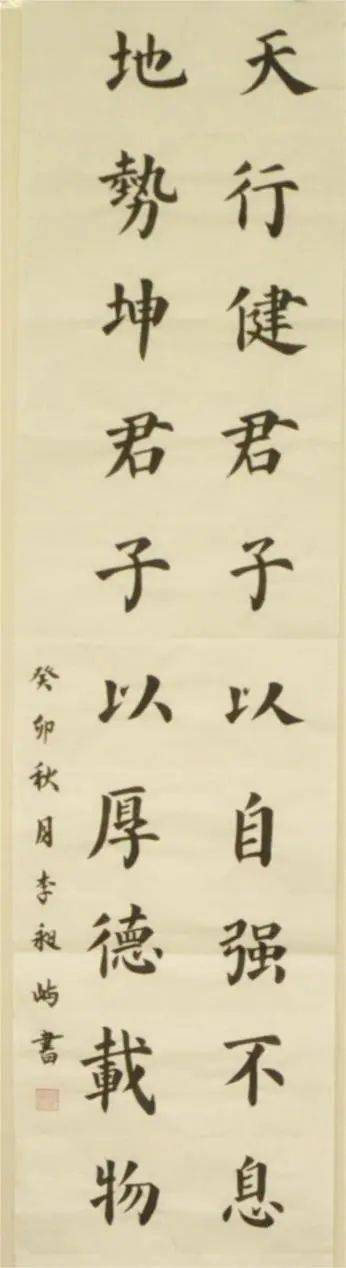 天行健君子以自强不息
地勢坤君子以厚德載物
癸卯秋月李昶屿書